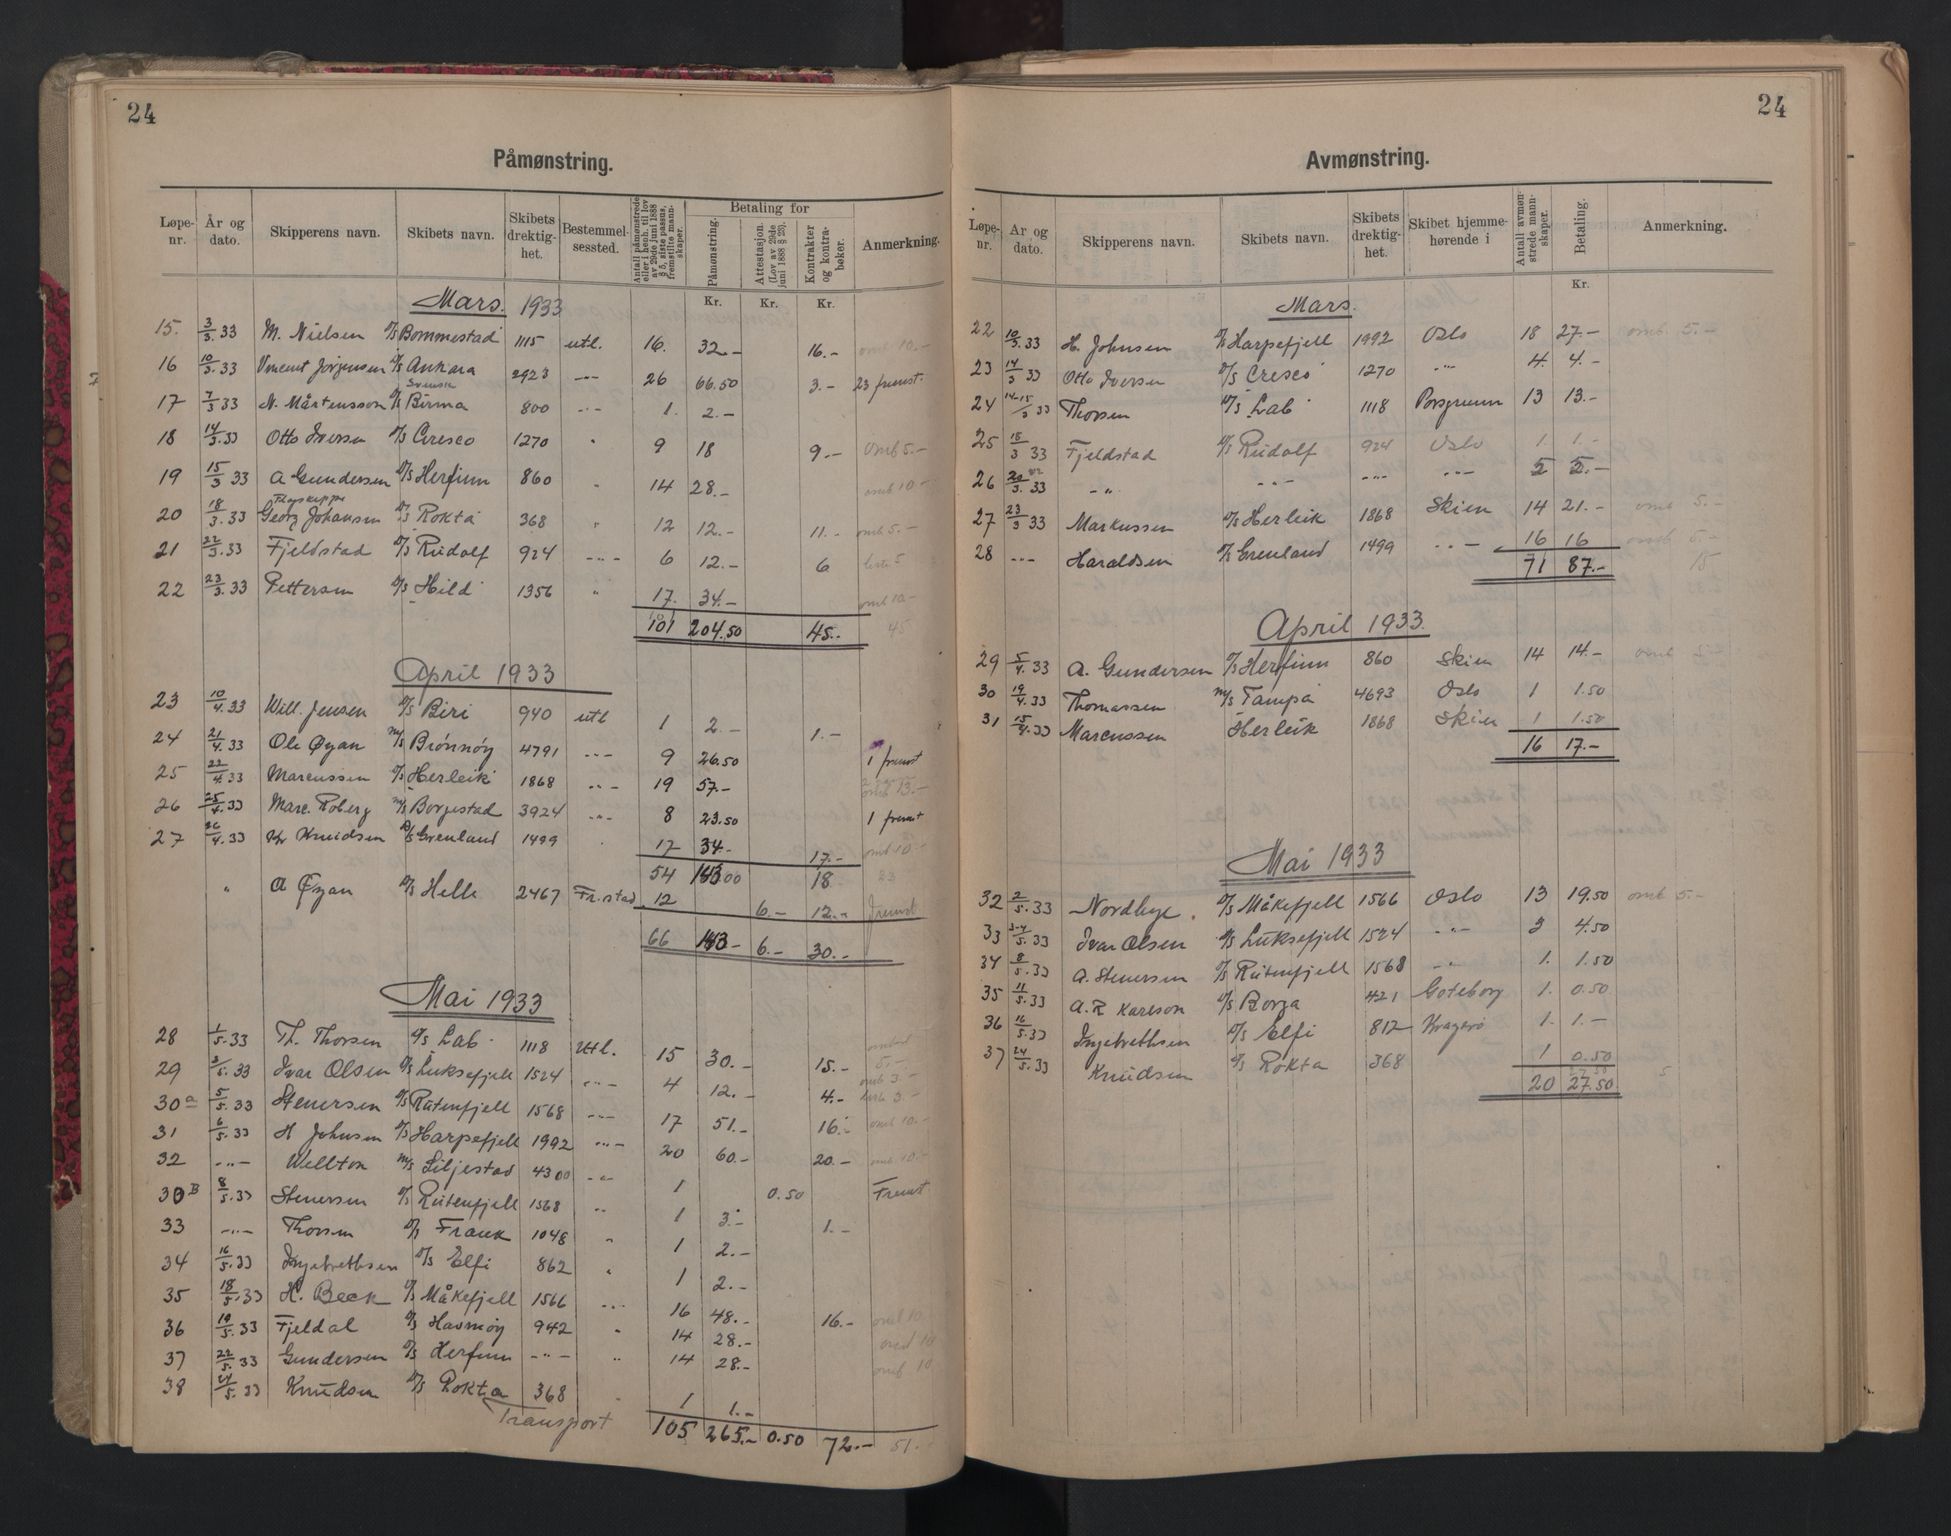 24
Påmønstring.
Løpenr. År og dato. Skipperens navn. Skibets navn. Skibets drektighet. Bestemmelsessted. Antall påmønstrede eller i henh. til lov av 29de juni 1888 § 5, siste passus, fremstilte mannskaper. Betaling for Påmønstring. Attestasjon. (Lov av 29de juni 1888 § 28). Kontrakter og kontrabøker. Anmerkning.
Kr. Kr. Kr.
Mars. 1933
15. 3/3.33 M. Nielsen D/S Bommestad 1115 utl. 16. 32.- 16.- omb 10.-
16 10/3.33 Vincent Jørgensen D/S Ankara 2923 -"- 26 66.50 3.- 23 fremst.
Svensk
17 7/3 33 N. Mårtensson D/S Birma 800 -"- 1. 2.-
18 14/3.33 Otto Iversen D/S Cresco 1270 " 9 18 9.- omb 5.-
19 15/3 33 A Gundersen D/S Herfinn 860 " 14 28.- omb 10.-
20 18/3.33 Georg Johansen D/S Rokta 368 " 12 12.- 11.- omb 5.-
21 22/3.33 Fjeldstad D/S Rudolf 924 -"- 6 12.- 6 5
22 23/3.33 Pettersen D/S Hild 1356 " 17. 34.- omb 10.-
101 204.50 45.- 45
April 1933
23 10/4.33 Will. Jensen D/S Biri 940 utl 1 2.- 1.-
24 21/4.33 Ole Øyan M/S Brönnöy 4791 -"- 9 26.50 1 fremst
25 22/4.33 Marcussen D/S Herleik 1868 -"- 19 57.-
26 25/4.33 Marc. Roberg M/S Borgestad 3924 -"- 8 23.50 1 fremst
27 26/4.33 Kr Knudsen D/S Grenland 1499 " 17 34- 17.- omb 10.-
54 143.00 18
" A Øyan D/S Helle 2467 Fr.stad 12 6.- 12.- fremst
66 143- 6.- 30.-
Mai 1933
28 1/5.33 Th. Thorsen D/S Lab 1118 Utl. 15 30.- 15.- 5.-
29 3/5.33 Ivar Olsen D/S Luksefjell 1524 -"- 4 12.- 4.- omb 3.-
30a 5/5.33 Stenersen D/S Rutenfjell 1568 -"- 17 51.- 16.- omb 10.-
31 6/5.33 H Johnsen D/S Harpefjell 1992 -"- 20 60.- 20.- omb 10.-
32 -"- Wellton M/S Liljestad 4300 -"- 1 0.50 Fremst.
30B 8/5.33 Stenersen D/S Rutenfjell 1568 " 1 3.- 1.-
33 -"- Thorsen D/S Frank 1048 " 1 2.-
34 16/5.33 Ingebrethsen D/S Elfi 862 " 1 2.-
35 18/5.33 H. Beck D/S Måkefjell 1566 -"- 16 48.- 16.- omb 10
36 19/5.33 Fjeldal D/S Havnøy 942 " 14 28.- omb 10
37 22/5.33 Gundersen D/S Herfinn -"- " 14 28.- omb 10
38 24/5.33 Knudsen D/S Rokta 368 " 1 1.-
Transport 105 265.- 0.50 72.- 51.-
24
Avmønstring.
Løpenr. År og dato. Skipperens navn. Skibets navn. Skibets drektighet. Skibet hjemmehørende i Antall avmønstrede mannskaper. Betaling. Anmerkning.
Kr.
Mars.
22 10/3.33 H. Johnsen D/S Harpefjell 1992 Oslo 18 27.- omb. 5.-
23 14/3 33 Otto Iversen D/S Cresco 1270 -"- 4. 4.-
24 14-15/3 33 Thorsen D/S Lab 1118 Porsgrunn 13 13.-
25 18/3 33 Fjeldstad D/S Rudolf 924 Oslo 1 1.-
26 20/3.33 -"- -"- -"- -"- 5 5.-
27 23/3 33 Markussen D/S Herleik 1868 Skien 14 21.- omb 5.-
28 -"- Haraldsen D/S Grenland 1499 -"- 16 16 omb 5.-
71 87.- 15
April 1933.
29 5/4.33 A. Gundersen D/S Herfinn 860 Skien 14 14.- omb 5.-
30 19/4.33 Thomassen M/S Tampa 4693 Oslo 1 1.50
31 15/4.33 Marcussen Herleik 1868 Skien 1 1.50
16 17.-
Mai 1933
32 2/5.33 Nordbye. D/S Måkefjell 1566 Oslo 13 19.50 omb 5.-
33 3-4/5.33 Ivar Olsen D/S Luksefjell 1524 -"- 3 4.50
34 8/5.33 A. Stenersen D/S Rutenfjell 1568 -"- 1. 1.50
35 11/5.33 A.R Karlson D/S Borga 421 Goteborg 1. 0.50
36 16/5.33 Ingebrethsen D/S Elfi 812 Kragerø 1. 1.-
37 24/5.33 Knudsen D/S Rokta 368 1 0.50
20 27.50 5